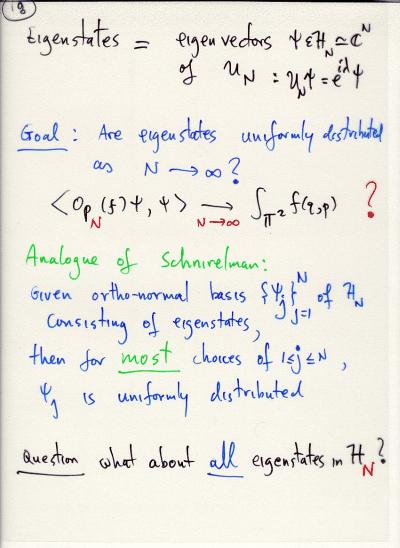 18
Eigenstates = eigenvectors ψ ∈ H_N ≃ ℂ^N
of U_N : U_Nψ = e^{iλ}ψ
Goal : Are eigenstates uniformly distributed
as N → ∞ ?
< Op_N(f)ψ, ψ > →_{N→∞} ∫_{𝕋²} f(q,p) ?
Analogue of Schnirelman:
Given ortho-normal basis {ψ_j}_{j=1}^N of H_N
consisting of eigenstates,
then for most choices of 1≤j≤N ,
ψ_j is uniformly distributed
Question what about all eigenstates in H_N ?